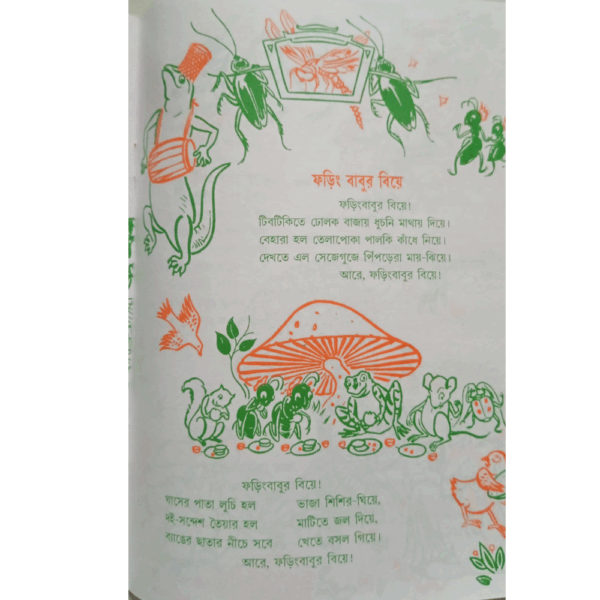 ফড়িং বাবুর বিয়ে
ফড়িংবাবুর বিয়ে!
টিকটিকিতে ঢোলক বাজায় ধুচনি মাথায় দিয়ে।
বেহারা হল তেলাপোকা পালকি কাঁধে নিয়ে।
দেখতে এল সেজেগুজে পিঁপড়েরা মায়-ঝিয়ে।
আরে, ফড়িংবাবুর বিয়ে!
ফড়িংবাবুর বিয়ে!
ঘাসের পাতা লুচি হল ভাজা শিশির-ঘিয়ে,
দই-সন্দেশ তৈয়ার হল মাটিতে জল দিয়ে,
ব্যাঙের ছাতার নীচে সবে খেতে বসল গিয়ে।
আরে, ফড়িংবাবুর বিয়ে!